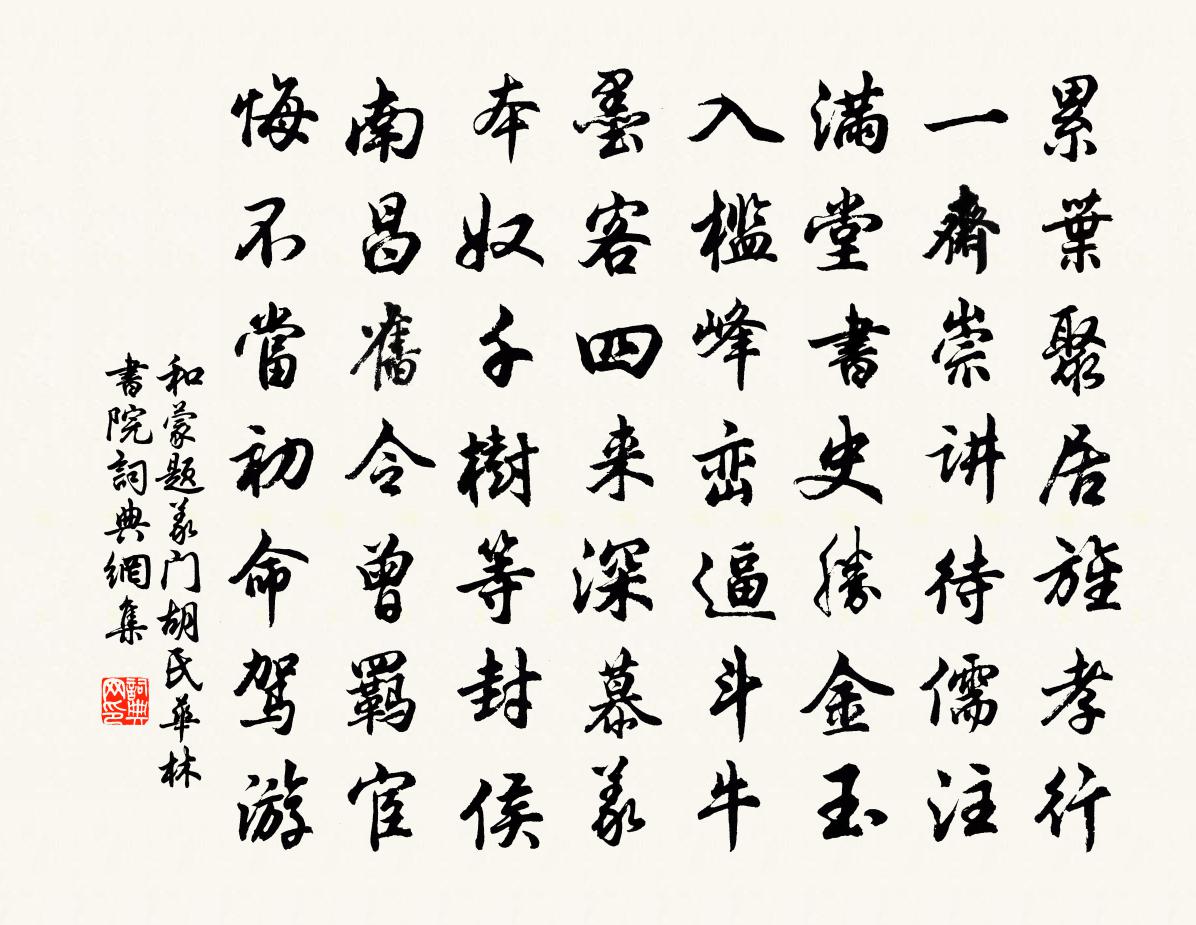 累葉聚居旌孝行
一齋崇讲待儒注
滿堂書史勝金玉
入檻峰峦逼斗牛
墨客四来深慕義
本奴千樹等封侯
南昌舊令曾羈宦
悔不當初命驾游
和蒙題義门胡氏華林
書院詞典網集
詞典
网印